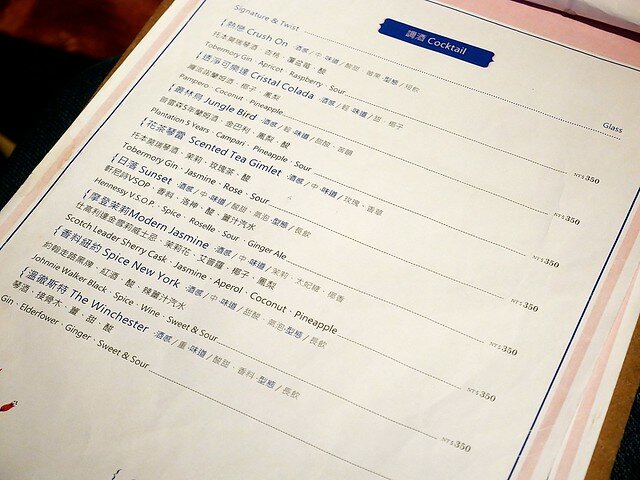 調酒 Cocktail
Signature & Twist
Glass
{ 熱戀 Crush On ‧酒感／中‧味道／酸甜
托本莫瑞琴酒‧杏桃‧覆盆莓‧酸
Tobermory Gin‧Apricot‧Raspberry‧Sour NT$350
{ 透淨可樂達 Cristal Colada ‧酒感／輕‧味道／甜‧椰子
椰子‧鳳梨
Pampero‧Coconut‧Pineapple NT$350
{ 叢林鳥 Jungle Bird ‧酒感／輕‧味道／甜酸
5年蘭姆酒‧金巴利‧鳳梨‧酸
Plantation 5 Years‧Campari‧Pineapple‧Sour NT$350
{ 花茶琴蕾 Scented Tea Gimlet ‧酒感／中‧味道／玫瑰‧香草
托本莫瑞琴酒‧茉莉‧玫瑰茶‧酸
Tobermory Gin‧Jasmine‧Rose‧Sour NT$350
{ 日落 Sunset ‧酒感／中‧味道／酸甜‧氣泡‧型態／長飲
軒尼詩VSOP‧香料‧洛神‧酸‧薑汁汽水
Hennessy V.S.O.P‧Spice‧Roselle‧Sour‧Ginger Ale NT$350
{ 摩登茉莉 Modern Jasmine ‧酒感／中‧味道／茉莉‧太妃糖‧椰香
仕高利達金雪莉威士忌‧茉莉花‧艾普羅‧椰子‧鳳梨
Scotch Leader Sherry Cask‧Jasmine‧Aperol‧Coconut‧Pineapple NT$350
{ 香料紐約 Spice New York ‧酒感／中‧味道／甜酸‧氣泡‧型態／長飲
約翰走路黑牌‧紅酒‧酸‧辣薑汁汽水
Johnnie Walker Black‧Spice‧Wine‧Sweet & Sour NT$350
{ 溫徹斯特 The Winchester ‧酒感／重‧味道／酸甜‧香料‧型態／長飲
琴酒‧接骨木‧薑‧甜‧酸
Gin‧Elderflower‧Ginger‧Sweet & Sour NT$350